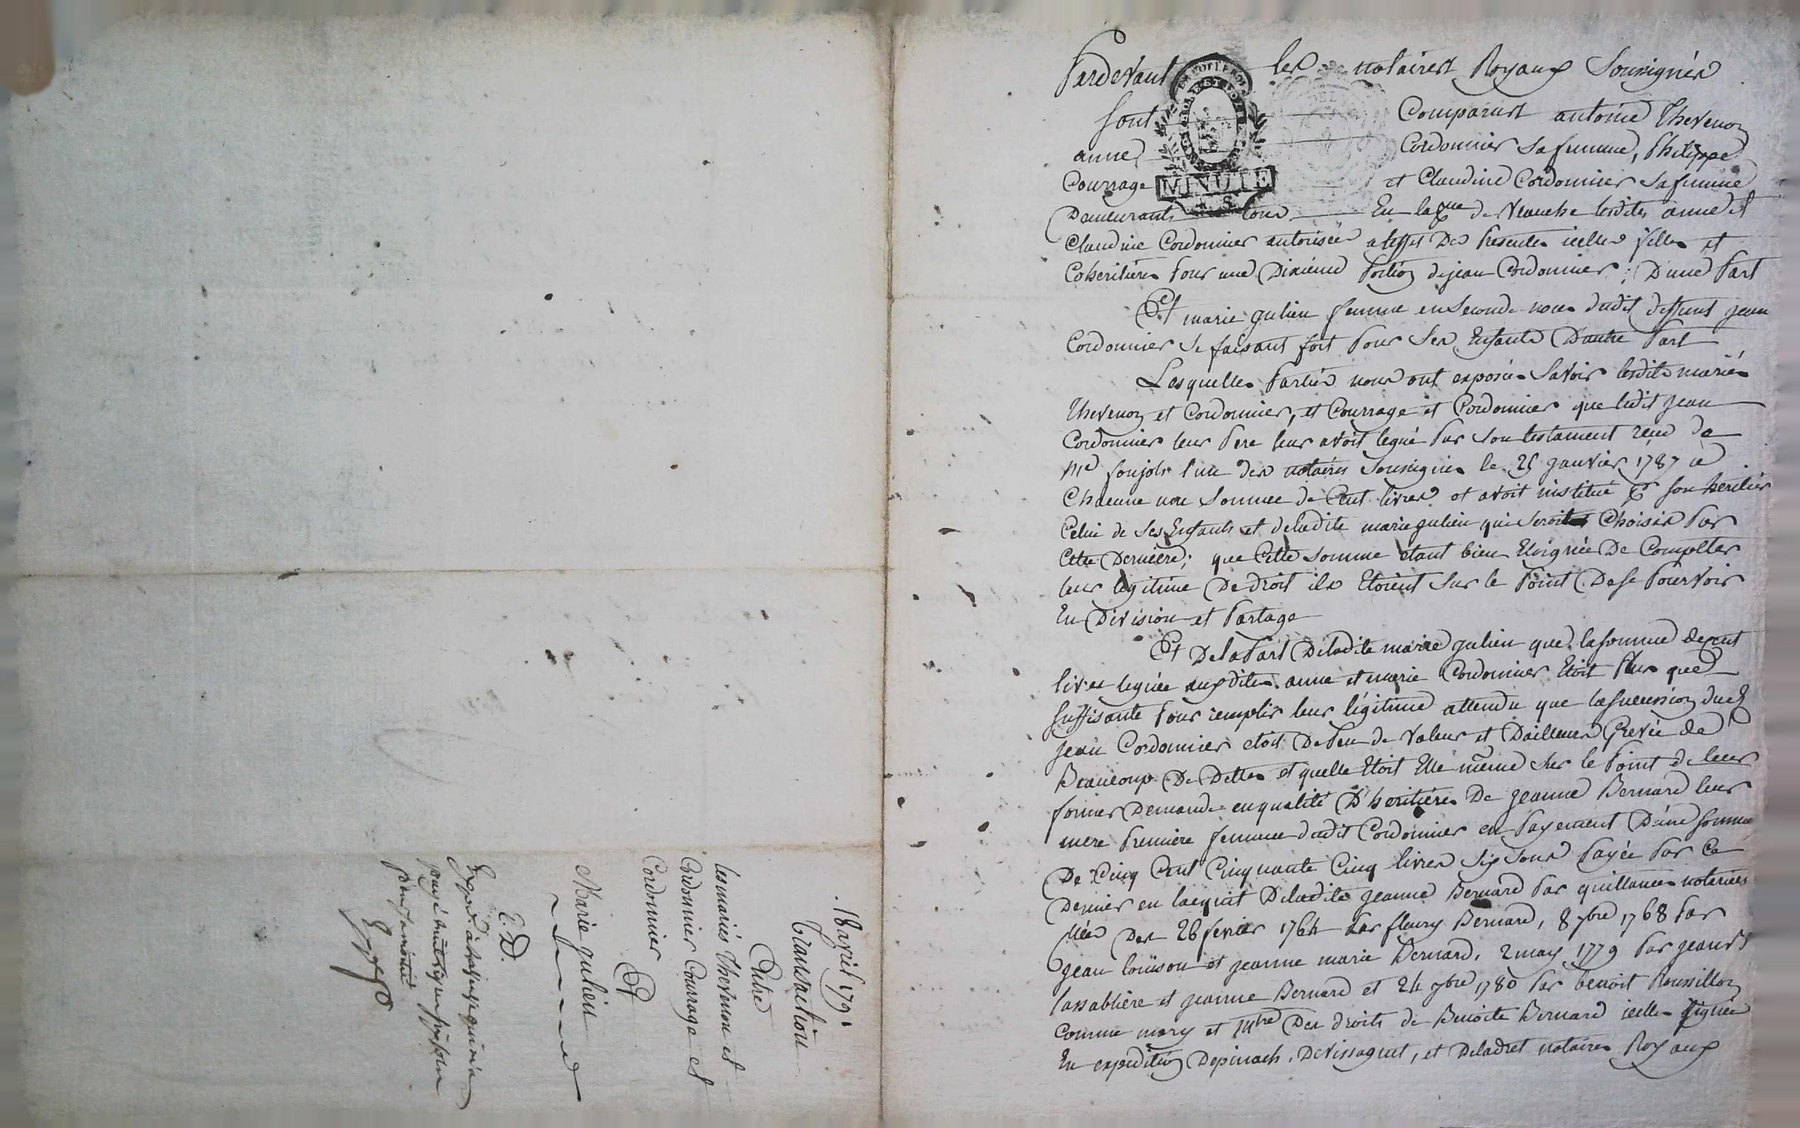 Pardevant les notaires Royaux Soussignés
sont Comparus antoine Thevenon
anne Cordonnier sa femme, Philippe
Courrage et Claudine Cordonnier sa femme
Demeurants tous En la de Veauche lesdites anne et
Claudine Cordonnier autorisées a l'effet Des Presentes icelles filles et
Coheritières Pour une Dixieme Portion de jean Cordonnier; D'une Part
Et marie gulien femme en Seconde noces dudit deffunt jean
Cordonnier se faisant fort Pour Ses Enfants D'autre Part
Lesquelles Parties nous ont exposées Savoir lesdits mariés
Thevenon et Cordonnier, et Courrage et Cordonnier que ledit jean
Cordonnier leur Pere leur avoit legué Par son testament reçu de
Me l'un des notaires Soussignés le 25 janvier 1787 à
Chacune une Somme de Cent livres et avoit institué Pr son heritier
Celui de Ses Enfants et de ladite marie gulien qui seroit Choisis Par
Cette Derniere; que Cette Somme etant bien Eloignée De Completter
leur legitime De droit ils Etoient Sur le Point De se Pourvoir
En Division et Partage
Et De la Part De ladite marie gulien que la somme de cent
livres leguée auxdites anne et marie Cordonnier Etoit Plus que
Suffisante Pour remplir leur légitime attendu que la succession dudt
jean Cordonnier etoit De Peu de Valeur et D'ailleurs Grevée de
Beaucoup De Dettes et quelle Etoit Elle même Sur le Point de leur
former Demande en qualité D'heritieres De jeanne Bernard leur
mere Premiere femme dudit Cordonnier en Payement D'une somme
De Cinq Cent Cinquante Cinq livres six sous Payée Par Ce
Dernier en l'acquit De ladite jeanne Bernard Par quittances notariées
Des 26 fevrier 1764 Par fleury Bernard, 8 7bre 1768 Par
jean loüison et jeanne marie Bernard, 2 may 1779 Par jean
lassabliere et jeanne Bernard et 24 9bre 1780 Par benoit Roussillon
Comme mary et mtre Des droits de Benoite Bernard icelles signées
En expedition Depinach, Devissaguet, et Deladret notaires Royaux
18 avril 1791
Transaction
Entre
les mariés Thevenon et
Cordonnier Courrage et
Cordonnier
Et
Marie gulien
E. D.
MINUTE